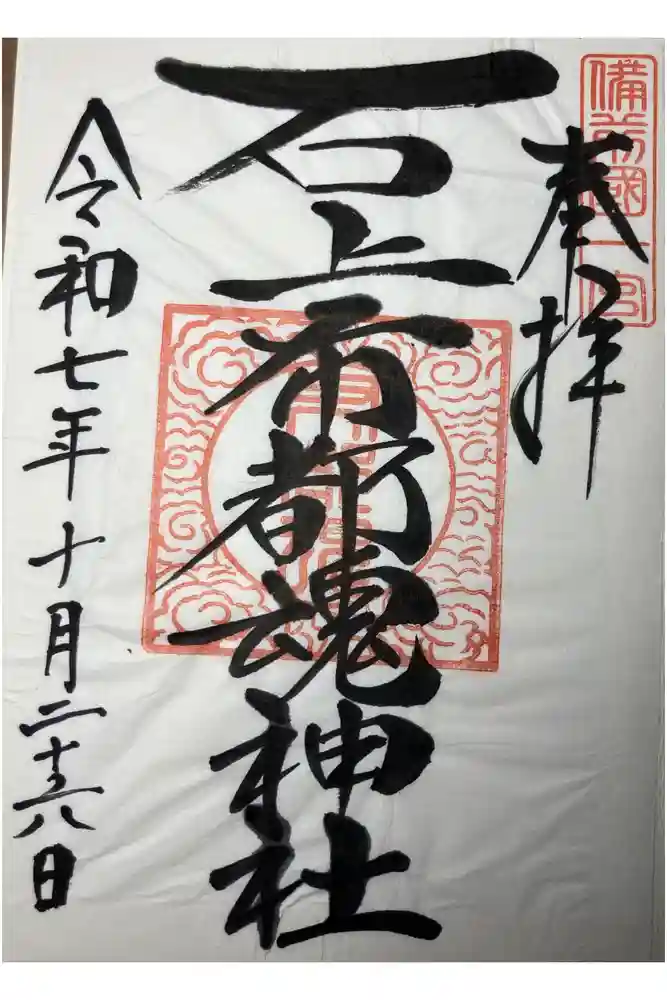 備前國一宮
奉拝
石上布都魂神社
令和七年十月二十六日